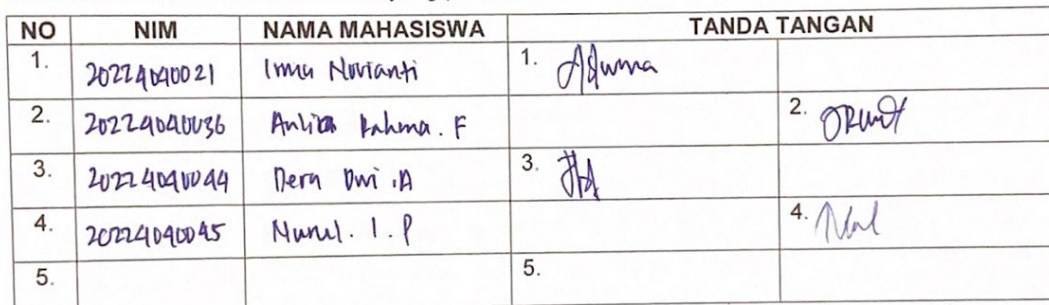 NO NIM NAMA MAHASISWA TANDA TANGAN
1. 20224040021 Irma Novianti 1.
2. 20224040036 Rahma. F 2.
3. 20224040044 Dera Dwi .A 3.
4. 20224040045 Nurul. I. P 4.
5. 5.